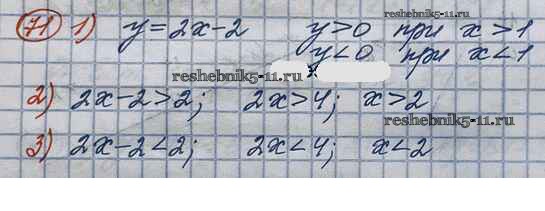 71 1) y=2x-2 y>0 при x>1
y<0 при x<1
reshebnik5-11.ru
reshebnik5-11.ru
2) 2x-2>2; 2x>4; x>2
reshebnik5-11.ru
3) 2x-2<2; 2x<4; x<2